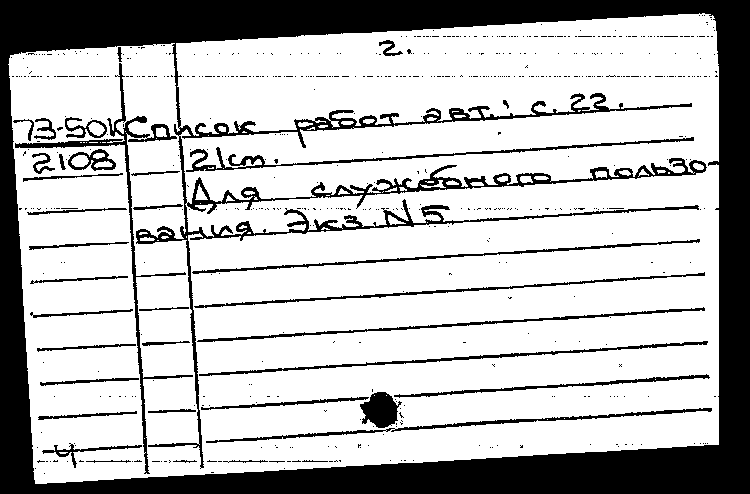 2.
73-50К Список работ авт.: с. 22.
2108 21см.
Для служебного пользо-
вания. Экз. N5
ч